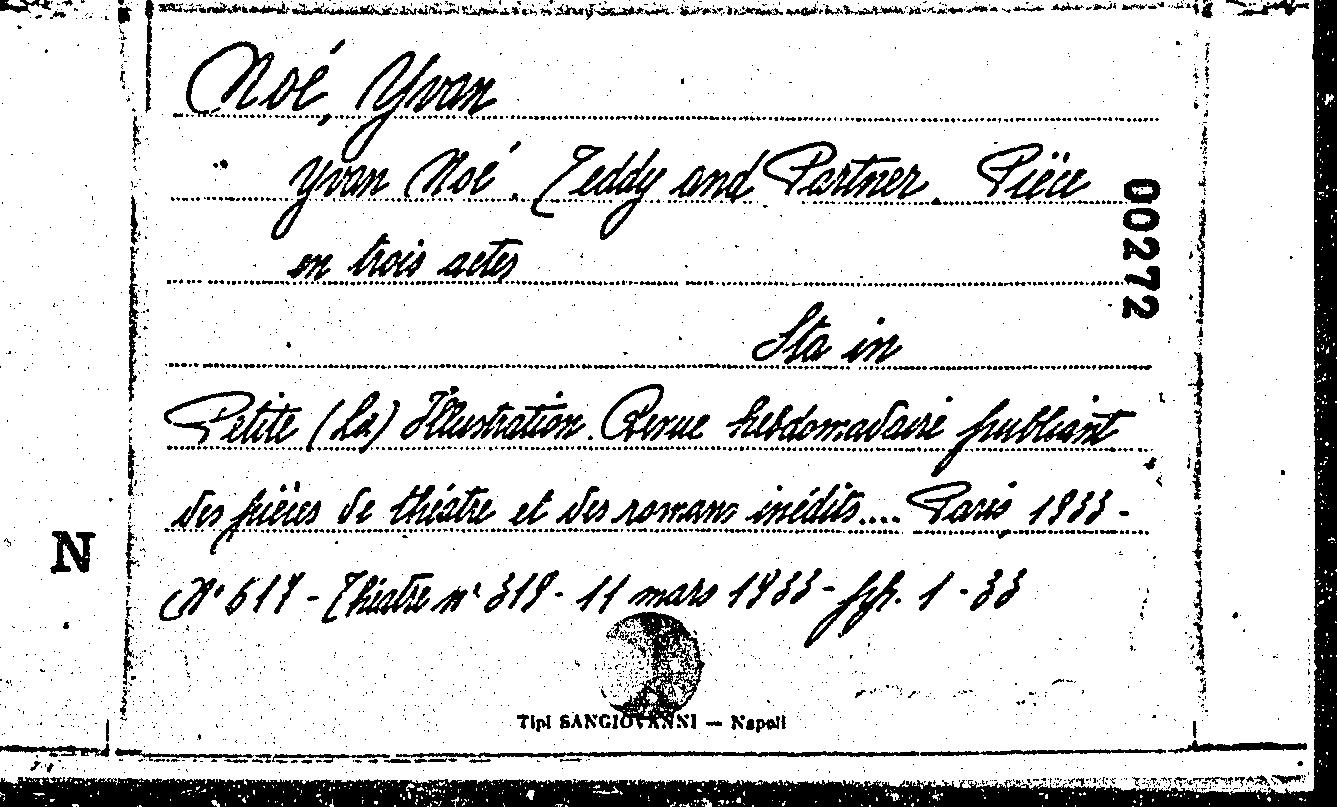 Noé, Yvan
Yvan Noé. Teddy and Partner. Pièce
en trois actes
00272
Sta in
Petite (La) Illustration. Revue hebdomadaire publiant
des pièces de théatre et des romans inédits.... Paris 1933 -
N
N° 617 - Théatre n° 319 - 11 mars 1933 - fgh. 1 - 33
Tipi SANGIOVANNI — Napoli